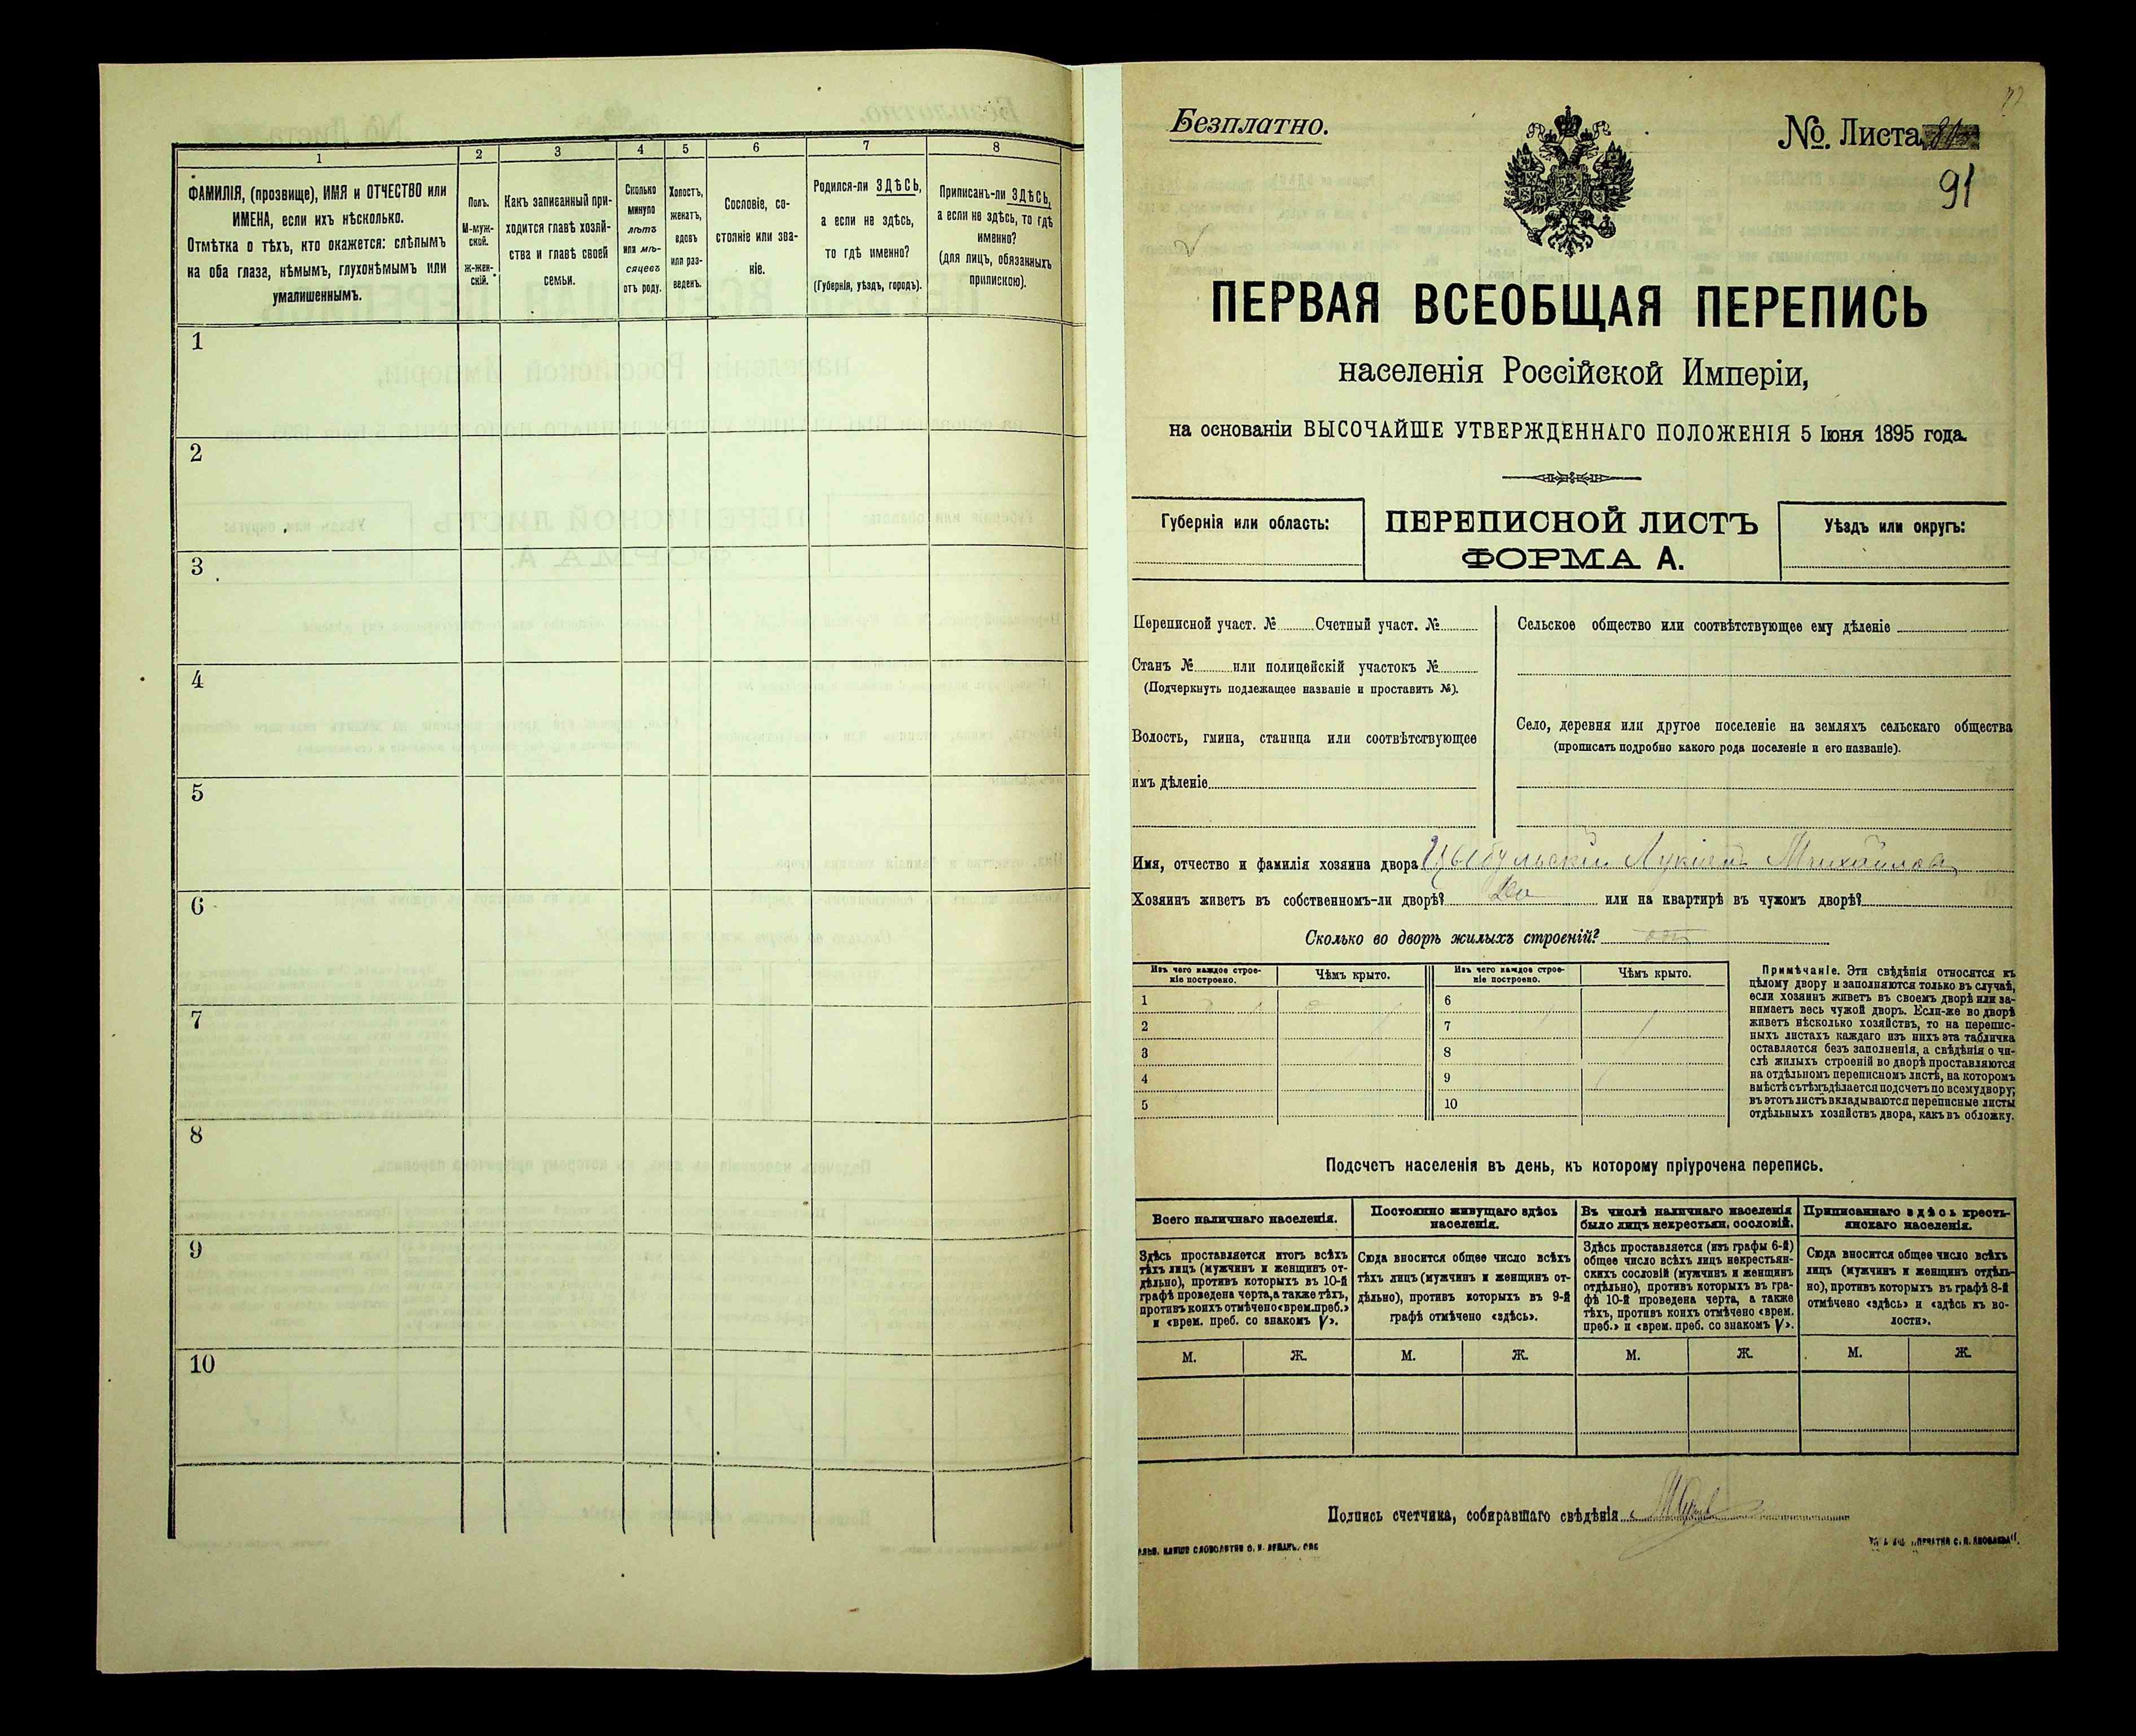 1 2 3 4 5 6 7 8
ФАМИЛІЯ, (прозвище), ИМЯ и ОТЧЕСТВО или
ИМЕНА, если ихъ нѣсколько.
Отмѣтка о тѣхъ, кто окажется: слѣпымъ
на оба глаза, нѣмымъ, глухонѣмымъ или
умалишеннымъ.
Полъ.
М-муж-
ской.
Ж-жен-
скій.
Какъ записанный при-
ходится главѣ хозяй-
ства и главѣ своей
семьи.
Сколько
минуло
лѣтъ
или мѣ-
сяцевъ
отъ роду.
Холостъ,
женатъ,
вдовъ
или раз-
веденъ.
Сословіе, со-
стояніе или зва-
ніе.
Родился-ли ЗДѢСЬ,
а если не здѣсь,
то гдѣ именно?
(Губернія, уѣздъ, городъ).
Приписанъ-ли ЗДѢСЬ,
а если не здѣсь, то гдѣ
именно?
(для лицъ, обязанныхъ
припискою).
1
2
3
4
5
6
7
8
9
10
Безплатно.
№. Листа
91
ПЕРВАЯ ВСЕОБЩАЯ ПЕРЕПИСЬ
населенія Россійской Имперіи,
на основаніи ВЫСОЧАЙШЕ УТВЕРЖДЕННАГО ПОЛОЖЕНІЯ 5 Іюня 1895 года.
Губернія или область:
ПЕРЕПИСНОЙ ЛИСТЪ
ФОРМА А.
Уѣздъ или округъ:
Переписной участ. № Счетный участ. №
Станъ № или полицейскій участокъ №
(Подчеркнуть подлежащее названіе и проставить №).
Волость, гмина, станица или соотвѣтствующее
имъ дѣленіе
Сельское общество или соотвѣтствующее ему дѣленіе
Село, деревня или другое поселеніе на земляхъ сельскаго общества
(прописать подробно какого рода поселеніе и его названіе).
Имя, отчество и фамилія хозяина двора Цыбульскій Лукіанъ Михайловъ
Хозяинъ живетъ въ собственномъ-ли дворѣ? или на квартирѣ въ чужомъ дворѣ?
Сколько во дворѣ жилыхъ строеній?
Изъ чего каждое строе-
ніе построено.
Чѣмъ крыто.
Изъ чего каждое строе-
ніе построено.
Чѣмъ крыто.
1 6
2 7
3 8
4 9
5 10
Примѣчаніе. Эти свѣдѣнія относятся къ
цѣлому двору и заполняются только въ случаѣ,
если хозяинъ живетъ въ своемъ дворѣ или за-
нимаетъ весь чужой дворъ. Если-же во дворѣ
живетъ нѣсколько хозяйствъ, то на перепис-
ныхъ листахъ каждаго изъ нихъ эта табличка
оставляется безъ заполненія, а свѣдѣнія о чи-
слѣ жилыхъ строеній во дворѣ проставляются
на отдѣльномъ переписномъ листѣ, на которомъ
вмѣстѣ съ тѣмъ дѣлается подсчетъ по всему двору;
въ этотъ листъ вкладываются переписные листы
отдѣльныхъ хозяйствъ двора, какъ въ обложку.
Подсчетъ населенія въ день, къ которому пріурочена перепись.
Всего наличнаго населенія.
Постоянно живущаго здѣсь
населенія.
Въ числѣ наличнаго населенія
было лицъ некрестьян. сословій.
Приписаннаго здѣсь кресть-
янскаго населенія.
Здѣсь проставляется итогъ всѣхъ
тѣхъ лицъ (мужчинъ и женщинъ от-
дѣльно), противъ которыхъ въ 10-й
графѣ проведена черта, а также тѣхъ,
противъ коихъ отмѣчено «врем. преб.»
и «врем. преб. со знакомъ V».
Сюда вносится общее число всѣхъ
тѣхъ лицъ (мужчинъ и женщинъ от-
дѣльно), противъ которыхъ въ 9-й
графѣ отмѣчено «здѣсь».
Здѣсь проставляется (изъ графы 6-й)
общее число всѣхъ лицъ некрестьян-
скихъ сословій (мужчинъ и женщинъ
отдѣльно), противъ которыхъ въ гра-
фѣ 10-й проведена черта, а также
тѣхъ, противъ коихъ отмѣчено «врем.
преб.» и «врем. преб. со знакомъ V».
Сюда вносится общее число всѣхъ
лицъ (мужчинъ и женщинъ отдѣль-
но), противъ которыхъ въ графѣ 8-й
отмѣчено «здѣсь» и «здѣсь къ во-
лости».
М. Ж. М. Ж. М. Ж. М. Ж.
Подпись счетчика, собиравшаго свѣдѣнія